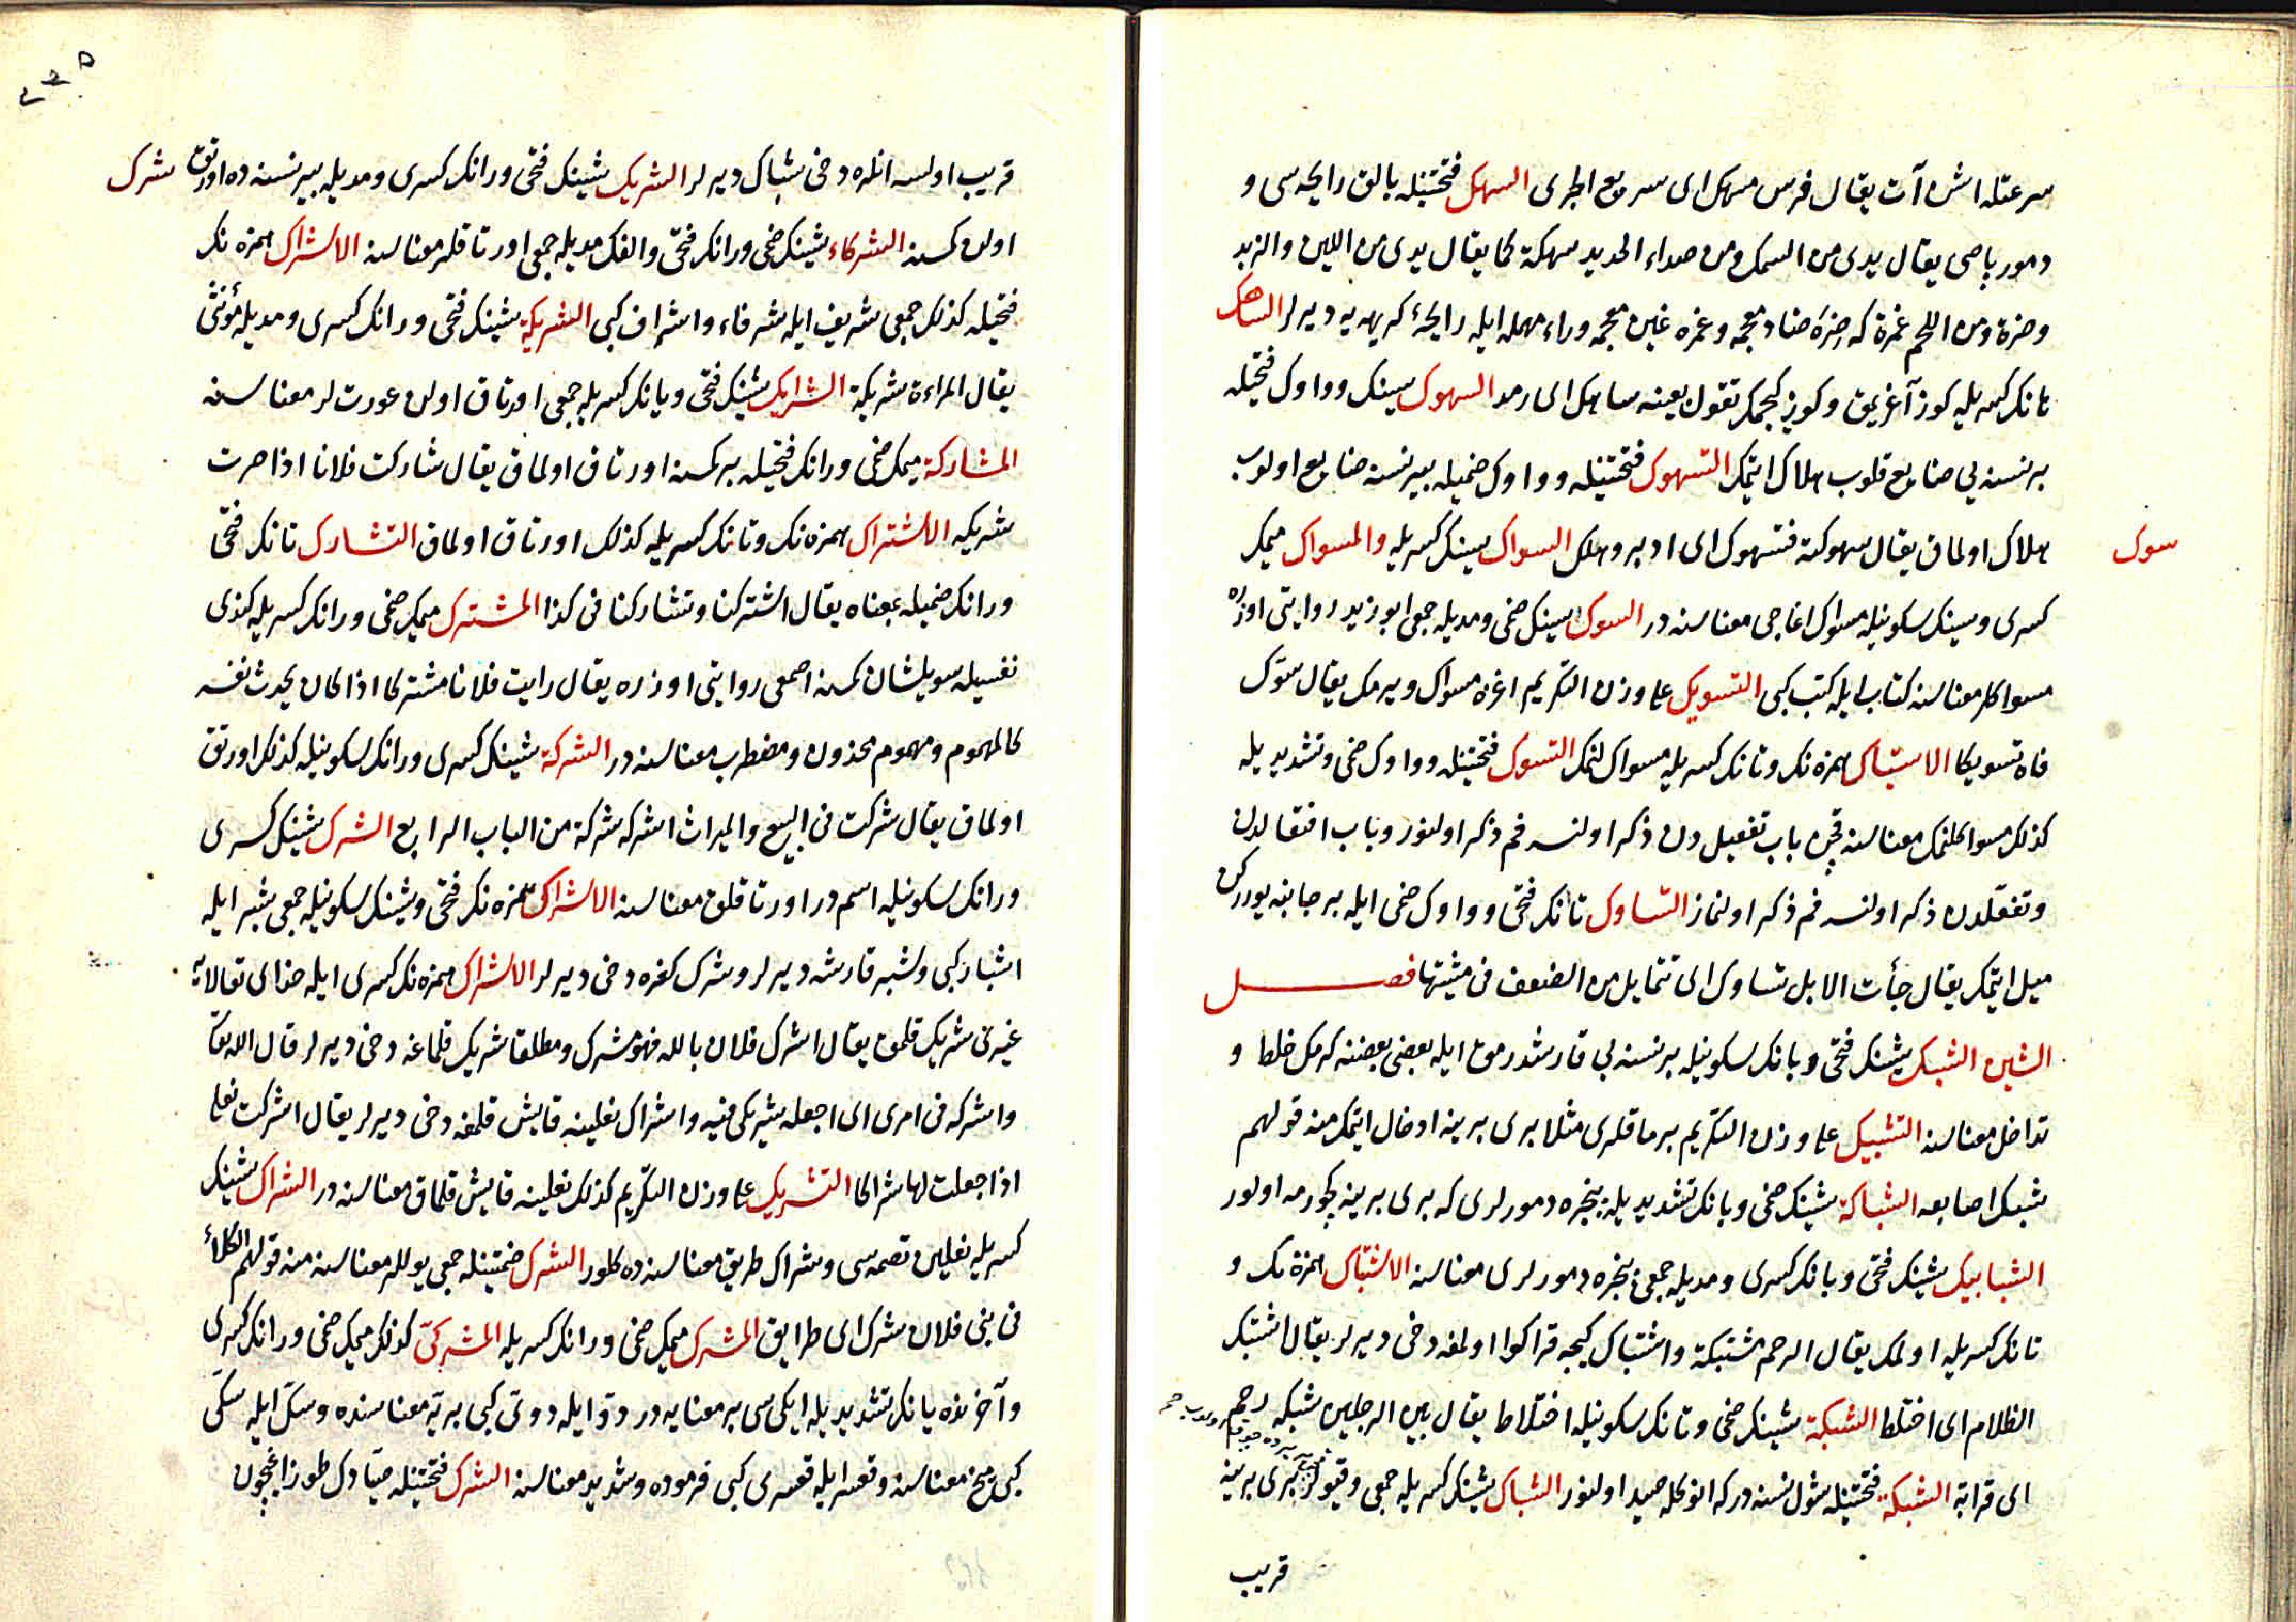 سرعتله اشر آت يقال فرس مسهك اى سريع الجرى السهك فتحتينله بالق رايحه سى و
دمور پاصى يقال يدى من السمك ومن صداء الحديد سهكة كما يقال يدى من اللبن والزبد
وضرة ومن اللحم غمرة كه ضره ضاد معجمه وغمره غين معجمه وراء مهمله ايله رايحۀ كريهه يه ديرلر الساهك
هانك كسريله كوز آغريمق وكوز كيجمك تقول بعينه ساهك اى رمد السهوك سينك وواوك فتحيله
بر نسنه يى ضايع قلوب هلاك ايتمك التسهوك فتحتينله وواوك ضميله بير نسنه ضايع اولوب
هلاك اولماق يقال سهوكته فتسهوك اى ادبر وهلك السواك سينك كسريله والمسواك ميمك
سوك
كسرى وسينك سكونيله مسواك اغاجى معناسنه در السوك سينك ضمى ومديله جمعى ابوزيد روايتى اوزره
مسواكلر معناسنه كتاب ايله كتب كبى التسويك على وزن التكريم اغزه مسواك ويرمك يقال سوّك
فاه تسويكا الاستياك همزه نك وتانك كسريله مسواكلنمك التسوك فتحتينله وواوك ضمى وتشديديله
كذلك مسواكلنمك معناسنه قچن باب تفعيل دن ذكر اولنسه فم ذكر اولنور وباب افتعالدن
وتفعّلدن ذكر اولنسه فم ذكر اولنماز التساوك تانك فتحى وواوك ضمى ايله بر جانبه يوررکن
ميل ايتمك يقال جأت الابل تساوك اى تتمايل من الضعف فى مشيتها فصل
الشين الشبك شينك فتحى وبانك سكونيله بر نسنه يى قارشدرمق ايله بعضى بعضنه كرمك خلط و
تداخل معناسنه التشبيك على وزن التكريم برماقلرى مثلا برى برينه ادخال ايتمك منه قولهم
شبك اصابعه الشباكة شينك ضمى وبانك تشديديله پنجره دمورلرى كه برى برينه كچورمه اولور
الشبابيك شينك فتحى وبانك كسرى ومديله جمعى پنجره دمورلرى معناسنه الاشتباك همزة نك و
تانك كسريله اولمك يقال الرحم مشتبكة واشتباك كيجه قراكوا اولمغه دخى ديرلر يقال اشتبك
الظلام اى اختلط الشبكة شينك ضمى وتانك سكونيله اختلاط يقال بين الرجلين شبكة رحم
اى قرابة الشبكة فتحتينله شول نسنه دركه انوكله صيد اولنور الشباك شينك كسريله جمعى وقيولر برى برينه
قريب
قريب اولسه انلره دخى شباك ديرلر الشريك شينك فتحى ورانك كسرى ومديله بير نسنه ده اورتق
شرك
اولان كسنه الشركاء شينك ضمى ورانك فتحى والفك مديله جمعى اورتاقلر معناسنه الاشراك همزه نك
فتحيله كذلك جمعى شريف ايله شرفاء واشراف كبى الشريكة شينك فتحى ورانك كسرى ومديله مؤنثى
يقال المراءة شريكة الشرايك شينك فتحى ويانك كسريله جمعى اورتاق اولان عورتلر معناسنه
المشاركة ميمك ضمى ورانك فتحيله بر كسنه اورتاق اولماق يقال شاركت فلانا اذا صرت
شريكه الاشتراك همزه نك وتانك كسريله كذلك اورتاق اولماق التشارك تانك فتحى
ورانك ضميله بمعناه يقال اشتركنا وتشاركنا فى كذا المشترك ميمك ضمى ورانك كسريله كندى
نفسيله سويلشان كمسنه اصمعى روايتى اوزره يقال رايت فلانا مشتركا اذا كان يحدث نفسه
كالمهموم ومهموم محذون ومضطرب معناسنه در الشركة شينك كسرى ورانك سكونيله كذلك اورتق
اولماق يقال شركت فى البيع والميراث اشركه شركة من الباب الرابع الشرك شينك كسرى
ورانك سكونيله اسم در اورتاقلق معناسنه الاشراك همزه نك فتحى وشينك سكونيله جمعى شبر ايله
اشبار كبى ولشبر قارشه ديرلر وشرك كفره دخى ديرلر الاشراك همزه نك كسرى ايله خداى تعالايه
غيرنى شريك قلمق يقال اشرك فلان بالله فهو مشرك ومطلقا شريك قلماغه دخى ديرلر قال الله تعا
واشركه فى امرى اى اجعله شريكى فيه واشراك نعلينه قايش قلمغه دخى ديرلر يقال اشركت نعلى
اذا جعلت لها شراكا التشريك على وزن التكريم كذلك نعلينه قايش قلماق معناسنه در الشراك شينك
كسريله نعلين تصمه سى وشراك طريق معناسنده كلور الشرك ضمتينله جمعى يوللر معناسنه منه قولهم الكلأ
فى بنى فلان شرك اى طرايق المشرك ميمك ضمى ورانك كسريله المشركىّ كذلك ميمك ضمى ورانك كسرى
وآخرنده يانك تشديديله ايكى سى بر معنايه در دوّ ايله دوىّ كبى بريّه معناسنده وسكّ ايله سكّى
كبى ميخ معناسنه وقعسر ايله قعسرى كبى فرموده وشديد معناسنه الشرك فتحتينله صيّادك طوزاغيچون